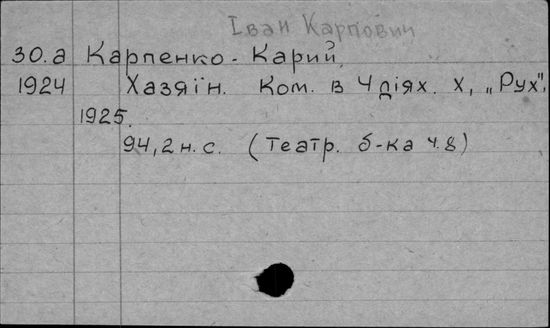 Іван Карпович
30.а Карпенко-Карий,
1924 Хазяїн. Ком. в 4 діях. Х, „Рух",
1925.
94,2 н. с. (Театр. б-ка ч. 8)